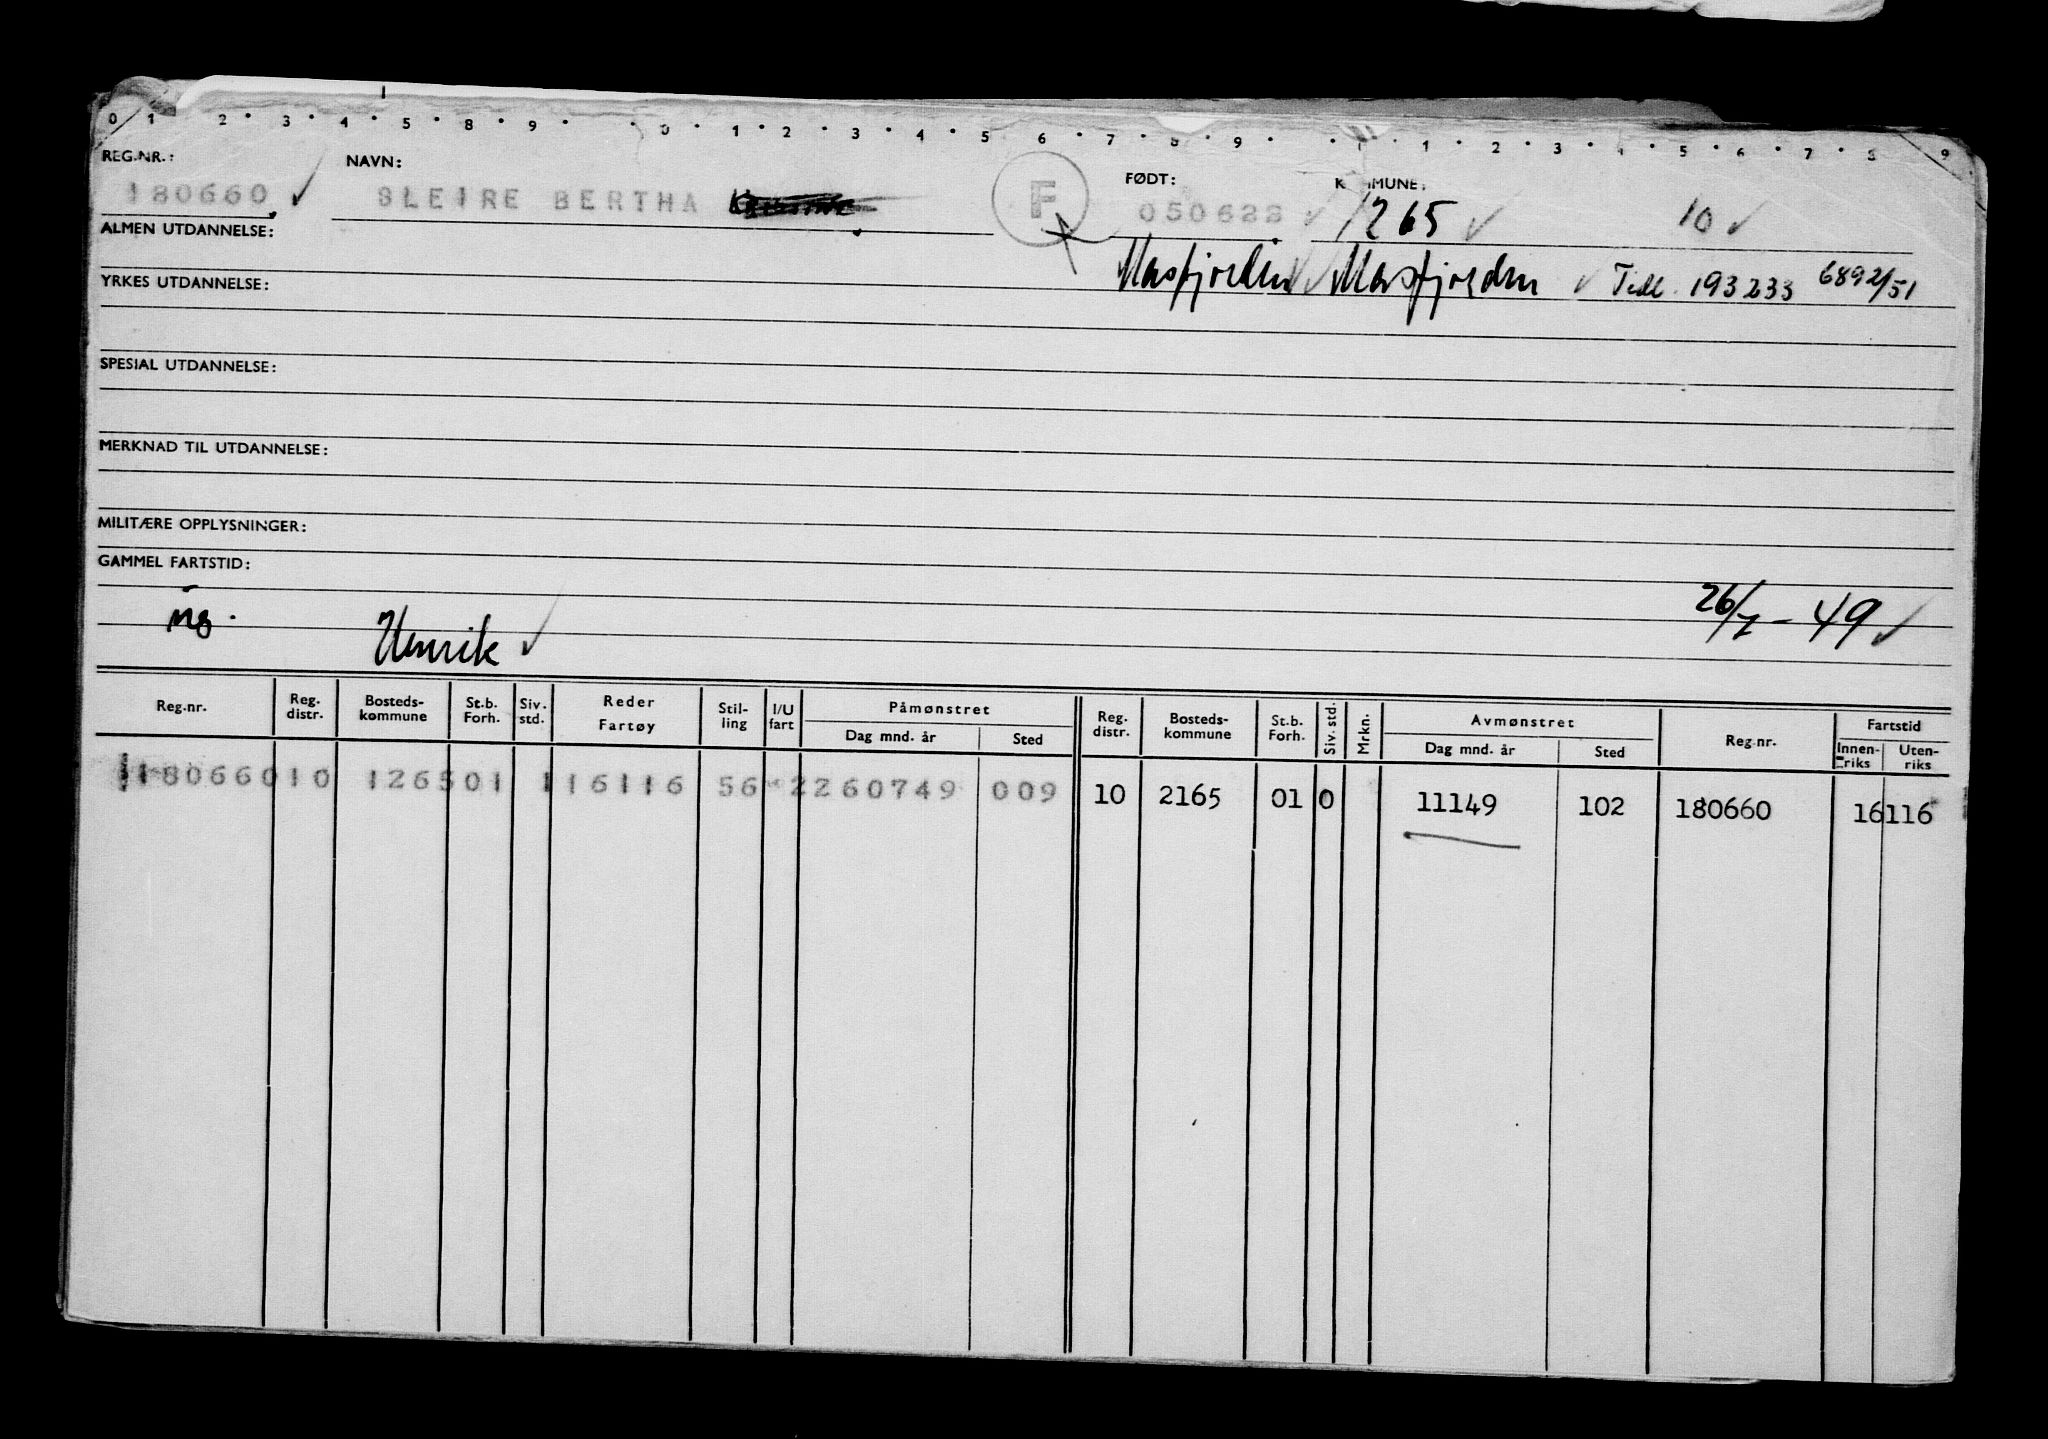 0 1 2 · 3 · 4 · 5 · 8 · 9 · · 0 · 1 · 2 · 3 · 4 · 5 · 6 · 7 · 8 · 9 · · 1 · 2 · 3 · 4 · 5 · 6 · 7 · 8 · 9
REG.NR.: NAVN: FØDT: KOMMUNE:
180660 ✓ SLEIRE BERTHA F ✓ 1265 ✓ 10 ✓
ALMEN UTDANNELSE:
Masfjorden ✓ Masfjorden ✓ Tidl. 193233 6892/51
YRKES UTDANNELSE:
SPESIAL UTDANNELSE:
MERKNAD TIL UTDANNELSE:
MILITÆRE OPPLYSNINGER:
GAMMEL FARTSTID:
ing. Henrik ✓ 26/7 - 49 ✓
Reg.nr. Reg. distr. Bosteds-kommune St.b. Forh. Siv. std. Reder Fartøy Stil-ling I/U fart Påmønstret Dag mnd. år Sted Reg. distr. Bosteds-kommune St.b. Forh. Siv. std. Mrkn. Avmønstret Dag mnd. år Sted Reg.nr. Fartstid Innen-riks Uten-riks
180660 10 1265 01 1 16116 56 2 260749 009 10 2165 01 0 11149 102 180660 16116